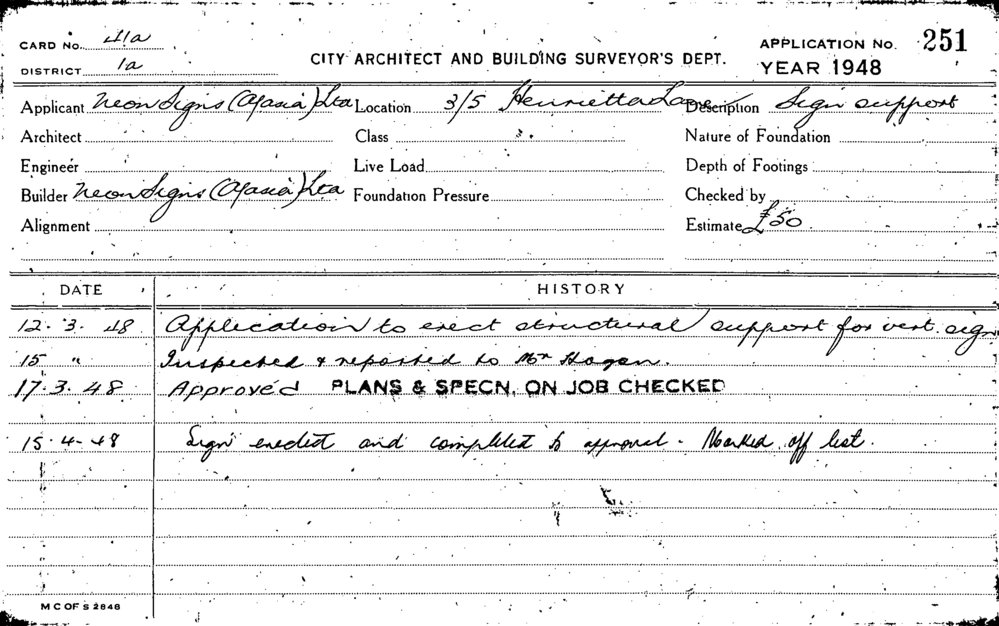 CARD No. 41a
DISTRICT 1a
CITY ARCHITECT AND BUILDING SURVEYOR'S DEPT.
APPLICATION No. 251
YEAR 1948
Applicant Neon Signs (A/asia) Ltd Location 3/5 Henrietta Lane Description Sign support
Architect Class Nature of Foundation
Engineer Live Load Depth of Footings
Builder Neon Signs (A/asia) Ltd Foundation Pressure Checked by
Alignment Estimate £50
DATE HISTORY
12.3.48 Application to erect structural support for vert. sign
15 " Inspected & reported to Mr Hogan.
17.3.48 Approved PLANS & SPECN. ON JOB CHECKED
15.4.48 Sign erected and completed to approval. Marked off list.
M C OF S 2848